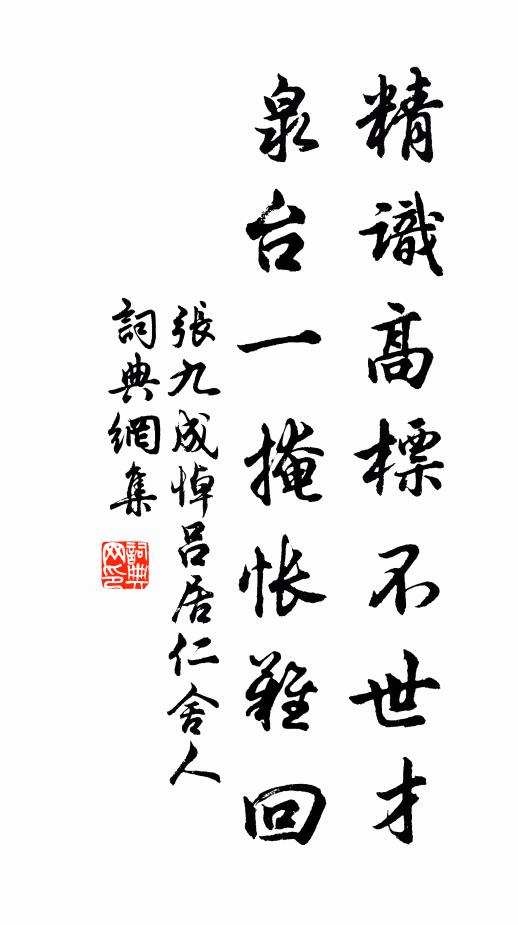 精識高標不世才
泉台一掩悵難回
張九成悼呂居仁舍人
詞典網集
詞典网印